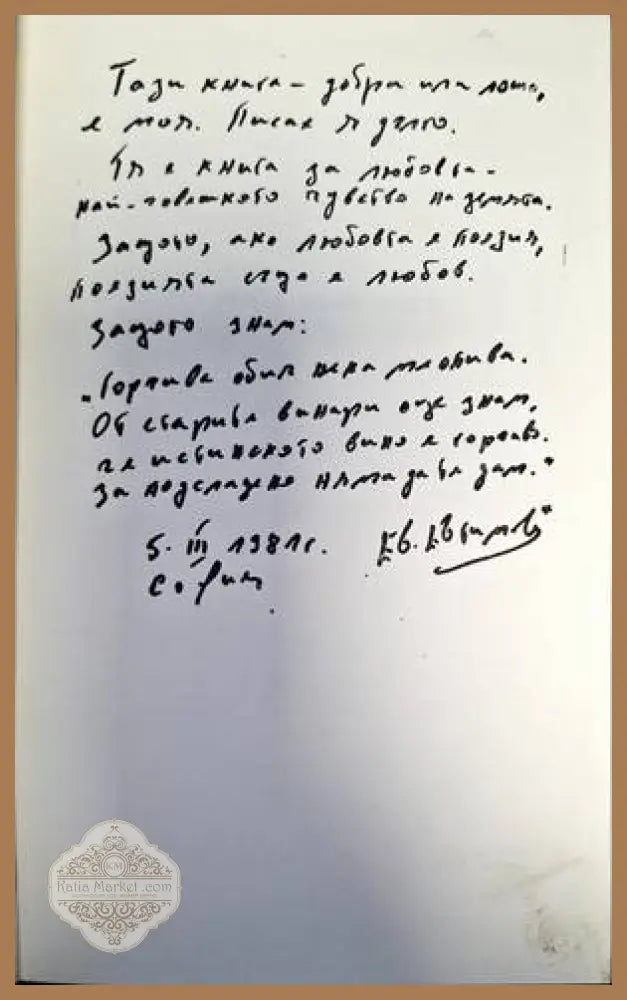 Тази книга – добра или лоша,
е моя. Писах я дълго.
Тя е книга за любовта –
най-човешкото чувство на земята.
Защото, ако любовта е поезия,
поезията също е любов.
Защото знам:
„Горчива обич
От старите винари още знам,
че истинското вино е горчиво.
За подсладено няма да ти дам."
5. III 1981 г. Евт. Евтимов
София
KM
Katia Market .com